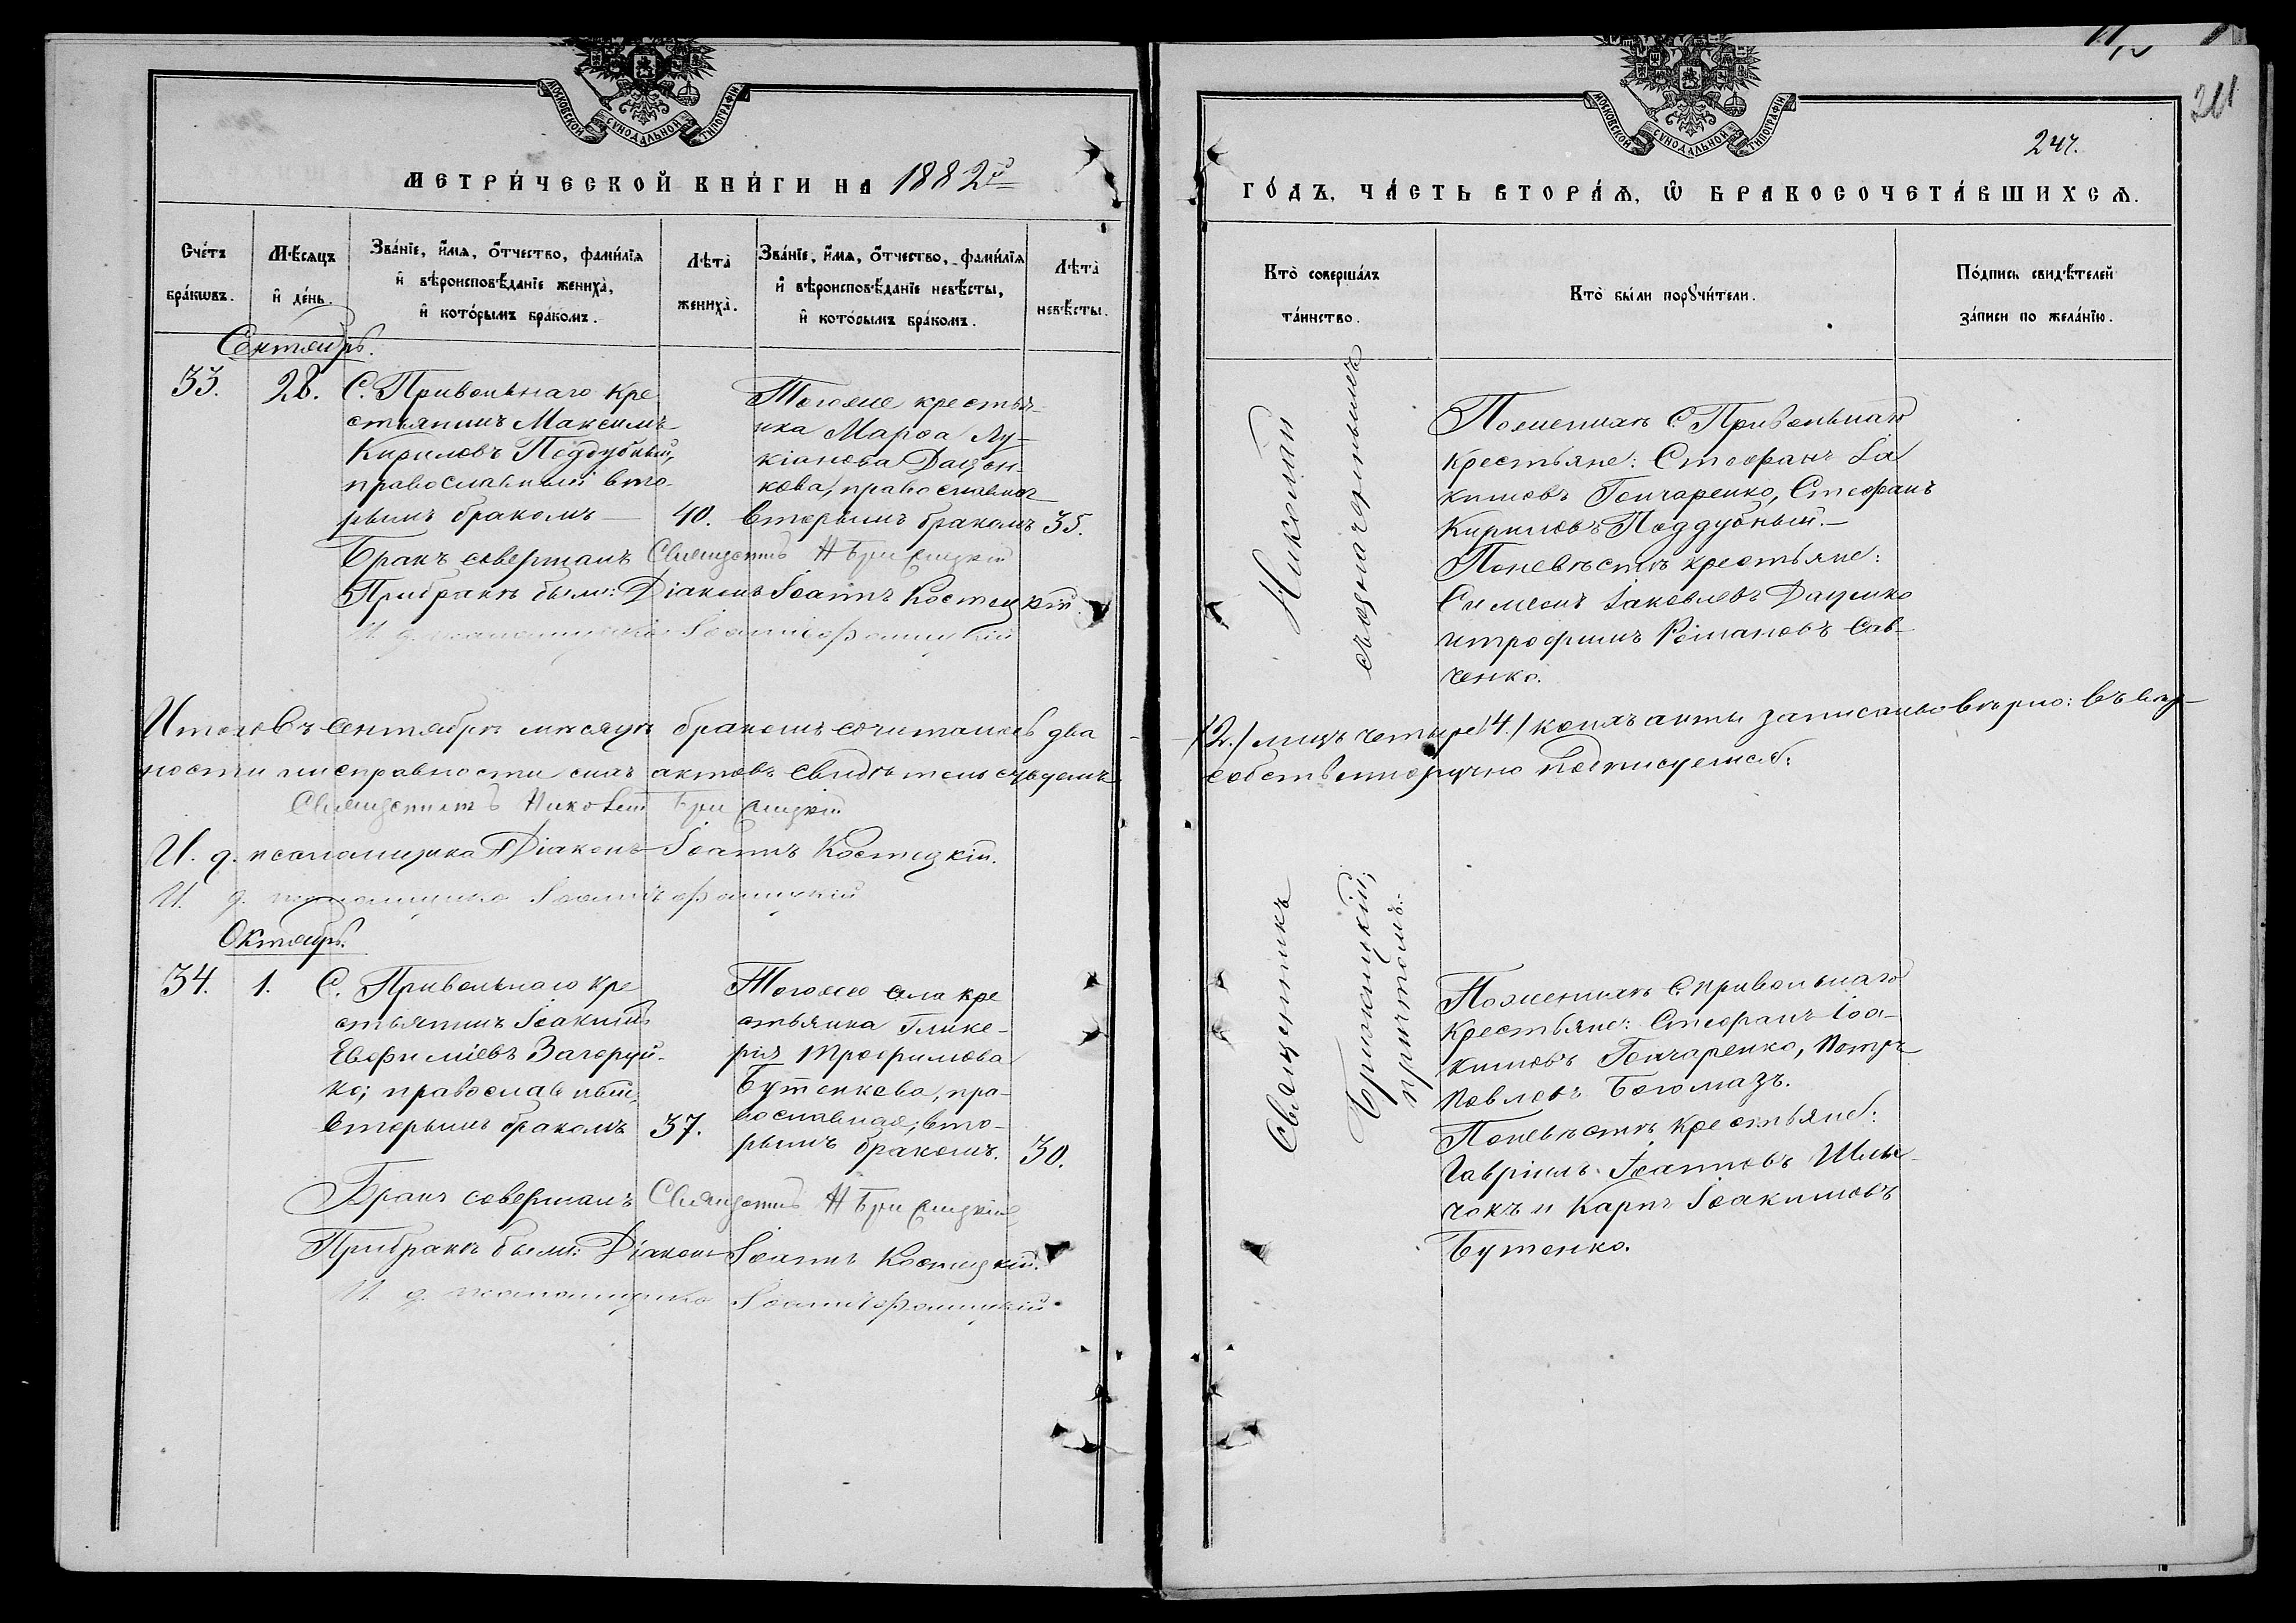 МОСКОВСКОЙ СѴНОДАЛЬНОЙ ТИПОГРАФІИ
МЕТРИ́ЧЕСКОЙ КНИ́ГИ НА 1882й
Сче́тъ бра́кѡвъ.
Мѣ́сяцъ и де́нь.
Зва́нїе, и́мѧ, ѻ́тчество, фами́лїѧ и вѣроисповѣ́данїе жениха̀, и кото́рымъ бра́комъ.
Лѣта̀ жениха̀.
Зва́нїе, и́мѧ, ѻ́тчество, фами́лїѧ и вѣроисповѣ́данїе невѣ́сты, и кото́рымъ бра́комъ.
Лѣта̀ невѣ́сты.
Сентябрь.
33.
28.
С. Привольнаго кре
стьянинъ Максимъ
Кириловъ Поддубный,
православный вто-
рымъ бракомъ —
40.
Тогоже крестьян-
ка Марѳа Лу-
кіанова Даценкова, православная
вторымъ бракомъ
35.
Бракъ совершалъ Священникъ Н Брислицкій
Прибракѣ были: Діаконъ Іоаннъ Костецкій.
И. д. псаломщика Іоаннъ
Итоговъ Сентябрѣ мѣсяцѣ бракомъ сочиталось два
ности и исправности сихъ актовъ свидѣтельствуемъ
Священникъ Николай Брислицкій
И. д. псаломщика Діаконъ Іоаннъ Костецкій.
И. д. псаломщика Іоаннъ
Октябрь.
34.
1.
С. Привольнаго кре
стьянинъ Іоакимъ
Евфиміевъ Загоруй-
ко; православный,
вторымъ бракомъ
37.
Тогоже села кре
стьянка Глике-
рія Трофимова
Бутенкова, пра-
вославная; вто-
рымъ бракомъ.
30.
Бракъ совершалъ Священникъ Н Брислицкій
Прибракѣ были: Діаконъ Іоаннъ Костецкій.
И. д. псаломщика Іоаннъ
МОСКОВСКОЙ СѴНОДАЛЬНОЙ ТИПОГРАФІИ
ГО́ДЪ, ЧА́СТЬ ВТОРА́Ѧ, Ѡ БРАКОСОЧЕТА́ВШИХСѦ.
Кто̀ соверша́лъ та́инство.
Кто̀ бы́ли порꙋчи́тели.
По́дпись свидѣ́телей за́писи по жела́нїю.
Священникъ Николай
Брислицкій, съозначеннымъ
причтомъ.
Поженихѣ С. Привольнаго
крестьяне: Стефанъ Іоа
кимовъ Гончаренко, Стефанъ
Кириловъ Поддубный. —
Поневѣстѣ крестьяне:
Симеонъ Іаковлевъ Даценко
итрофимъ Романовъ Сав-
ченко.
(2.) лицъ четыре (4.) коихъ акты записаны вѣрно:
собственноручно подписуемся:
Поженихѣ С. Привольнаго
крестьяне: Стефанъ Іоа-
кимовъ Гончаренко, Петръ
Павловъ Богомазъ.
Поневѣстѣ крестьяне:
Гавріилъ Іоанновъ
и Карпъ Іоакимовъ
Бутенко.